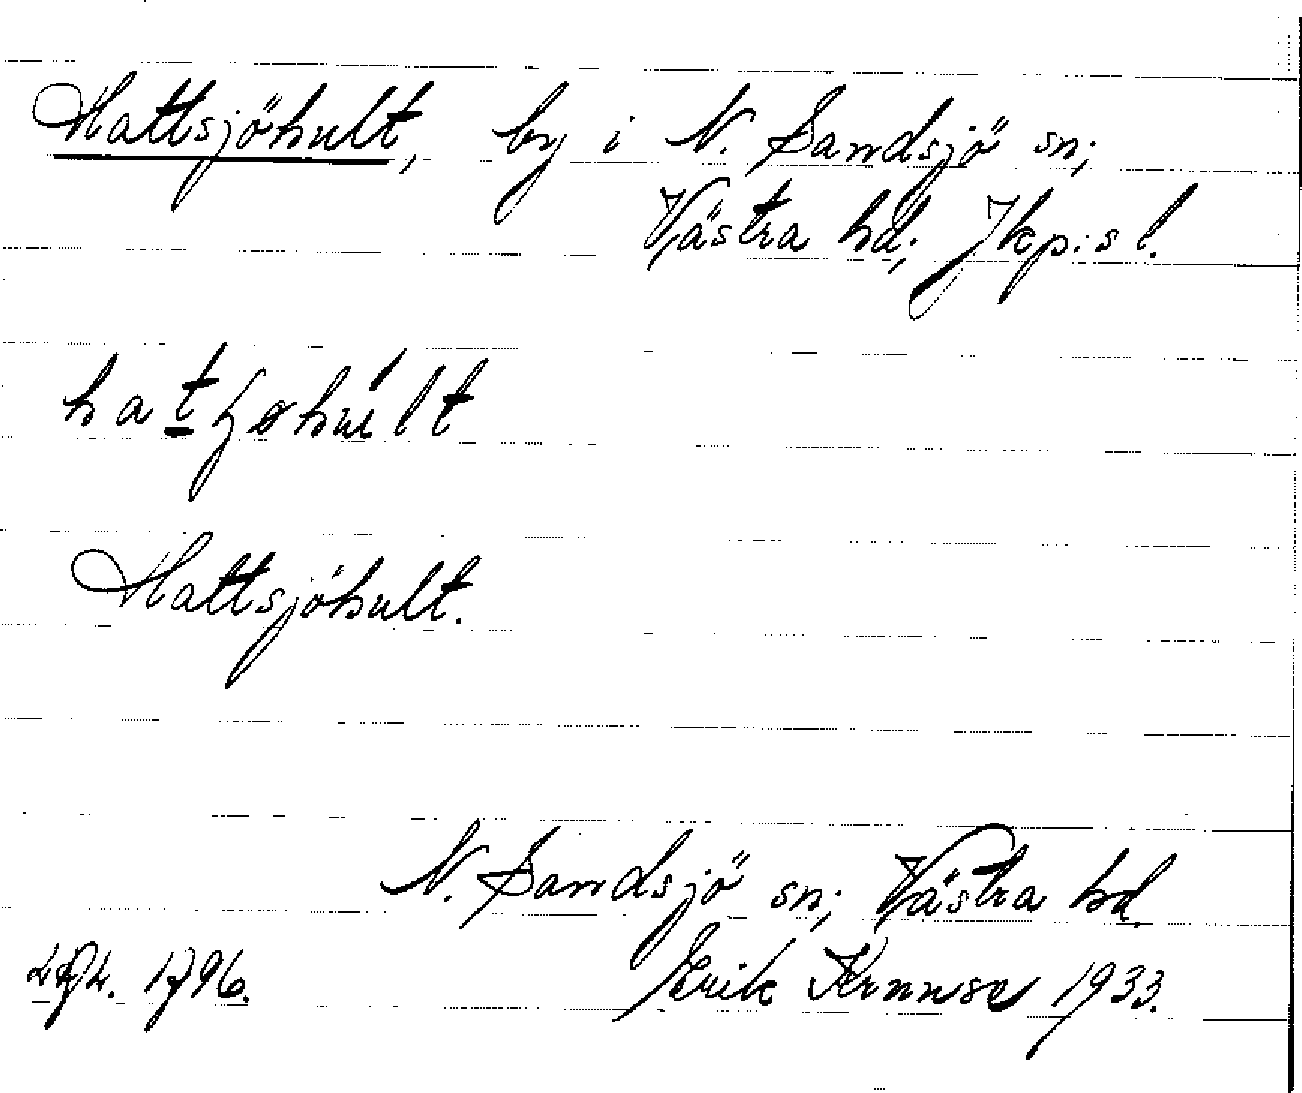 Hattsjöhult, by i N. Sandsjö sn;
Västra hd; Jkp:s l.
Hattsjöhult.
N. Sandsjö sn; Västra hd.
1796. Erik 1933.